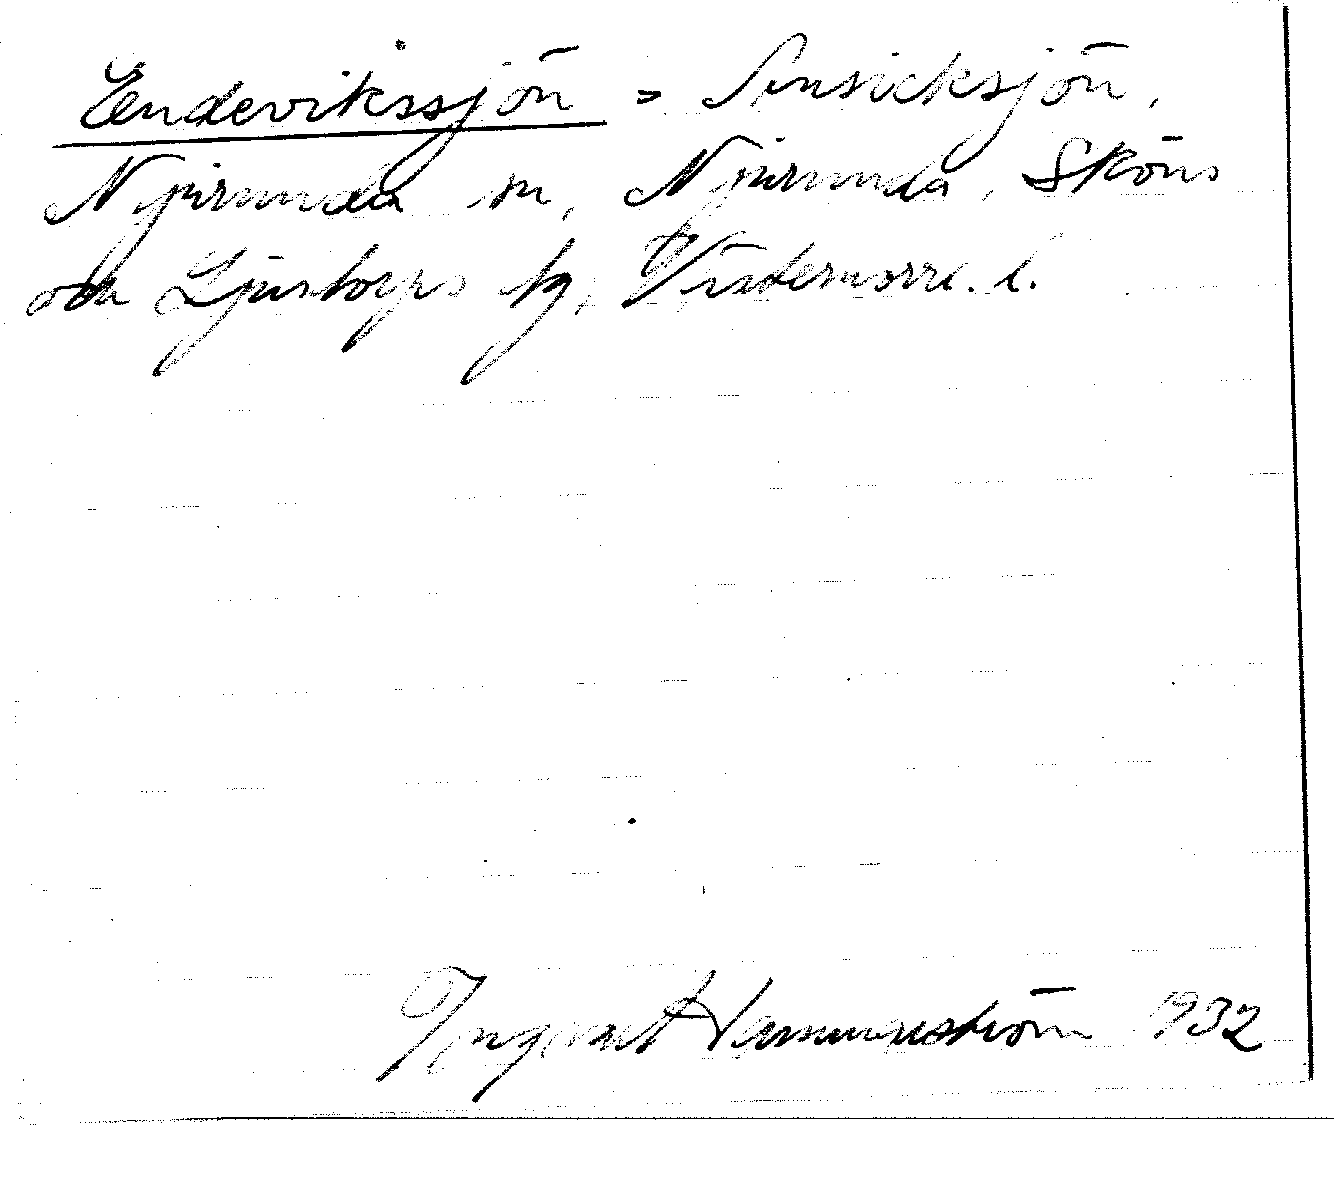 Eendevikssjön = Ansicksjön,
Njurunda sn, Njurunda, Sköns
och Ljustorps tg, Västernorrl. l.
Ingvart Hammarström 1932